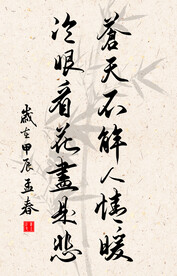 蒼天不解人情暖
冷眼看花盡是悲
歲在甲辰孟春